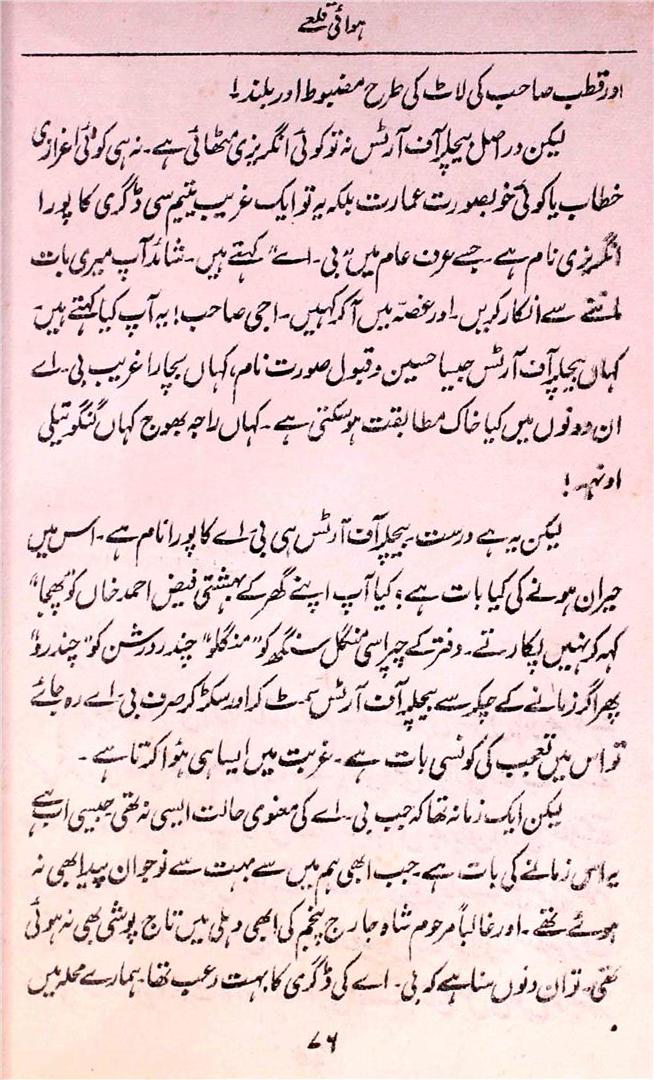 ہوائی قلعے
اور قطب صاحب کی لاٹ کی طرح مضبوط اور بلند!
لیکن دراصل بیچلر آف آرٹس نہ تو کوئی انگریزی مٹھائی ہے۔ نہ ہی کوئی اعزازی
خطاب یا کوئی خوبصورت عمارت بلکہ یہ تو ایک غریب یتیم سی ڈگری کا پورا
انگریزی نام ہے۔ جسے عرف عام میں "بی۔ اے" کہتے ہیں۔ شائد آپ میری بات
ماننے سے انکار کریں۔ اور غصہ میں آ کر کہیں۔ اجی صاحب! یہ آپ کیا کہتے ہیں
کہاں بیچلر آف آرٹس جیسا حسین و قبول صورت نام، کہاں بیچارا غریب بی۔ اے
ان دونوں میں کیا خاک مطابقت ہو سکتی ہے۔ کہاں راجہ بھوج کہاں گنگو تیلی
اونہہ!
لیکن یہ ہے درست۔ بیچلر آف آرٹس ہی بی۔ اے کا پورا نام ہے۔ اس میں
حیران ہونے کی کیا بات ہے؟ کیا آپ اپنے گھر کے بہشتی فیض احمد خاں کو "پھجا"
کہہ کر نہیں پکارتے۔ دفتر کے چپراسی منگل سنگھ کو "منگلو" چندر درشن کو "چندرو"
پھر اگر زمانے کے چکر سے بیچلر آف آرٹس سمٹ کر اور سکڑ کر صرف بی۔ اے رہ جائے
تو اس میں تعجب کی کونسی بات ہے۔ غربت میں ایسا ہی ہؤا کرتا ہے۔
لیکن ایک زمانہ تھا کہ جب بی۔ اے کی معنوی حالت ایسی نہ تھی جیسی اب ہے
یہ اس زمانے کی بات ہے جب ابھی ہم میں سے بہت سے نوجوان پیدا بھی نہ
ہوئے تھے۔ اور غالباً مرحوم شاہ جارج پنجم کی ابھی دہلی میں تاج پوشی بھی نہ ہوئی
تھی۔ تو ان دنوں سنا ہے کہ بی۔ اے کی ڈگری کا بہت رعب تھا۔ ہمارے محلہ میں
۷۶